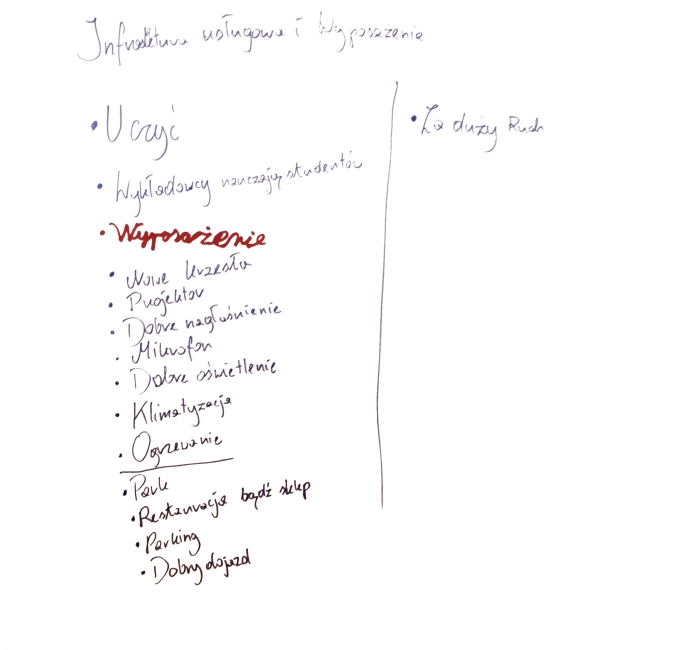 Infrastktura usługowa i Wyposażenie
• Uczyć
• Wykładowcy nauczają studentów
• Wyposażenie
• Nowe krzesła
• Projektor
• Dobre nagłośnienie
• Mikrofon
• Dobre oświetlenie
• Klimatyzacja
• Ogrzewanie
• Park
• Restauracja bądź sklep
• Parking
• Dobry dojazd
• Za duży Ruch